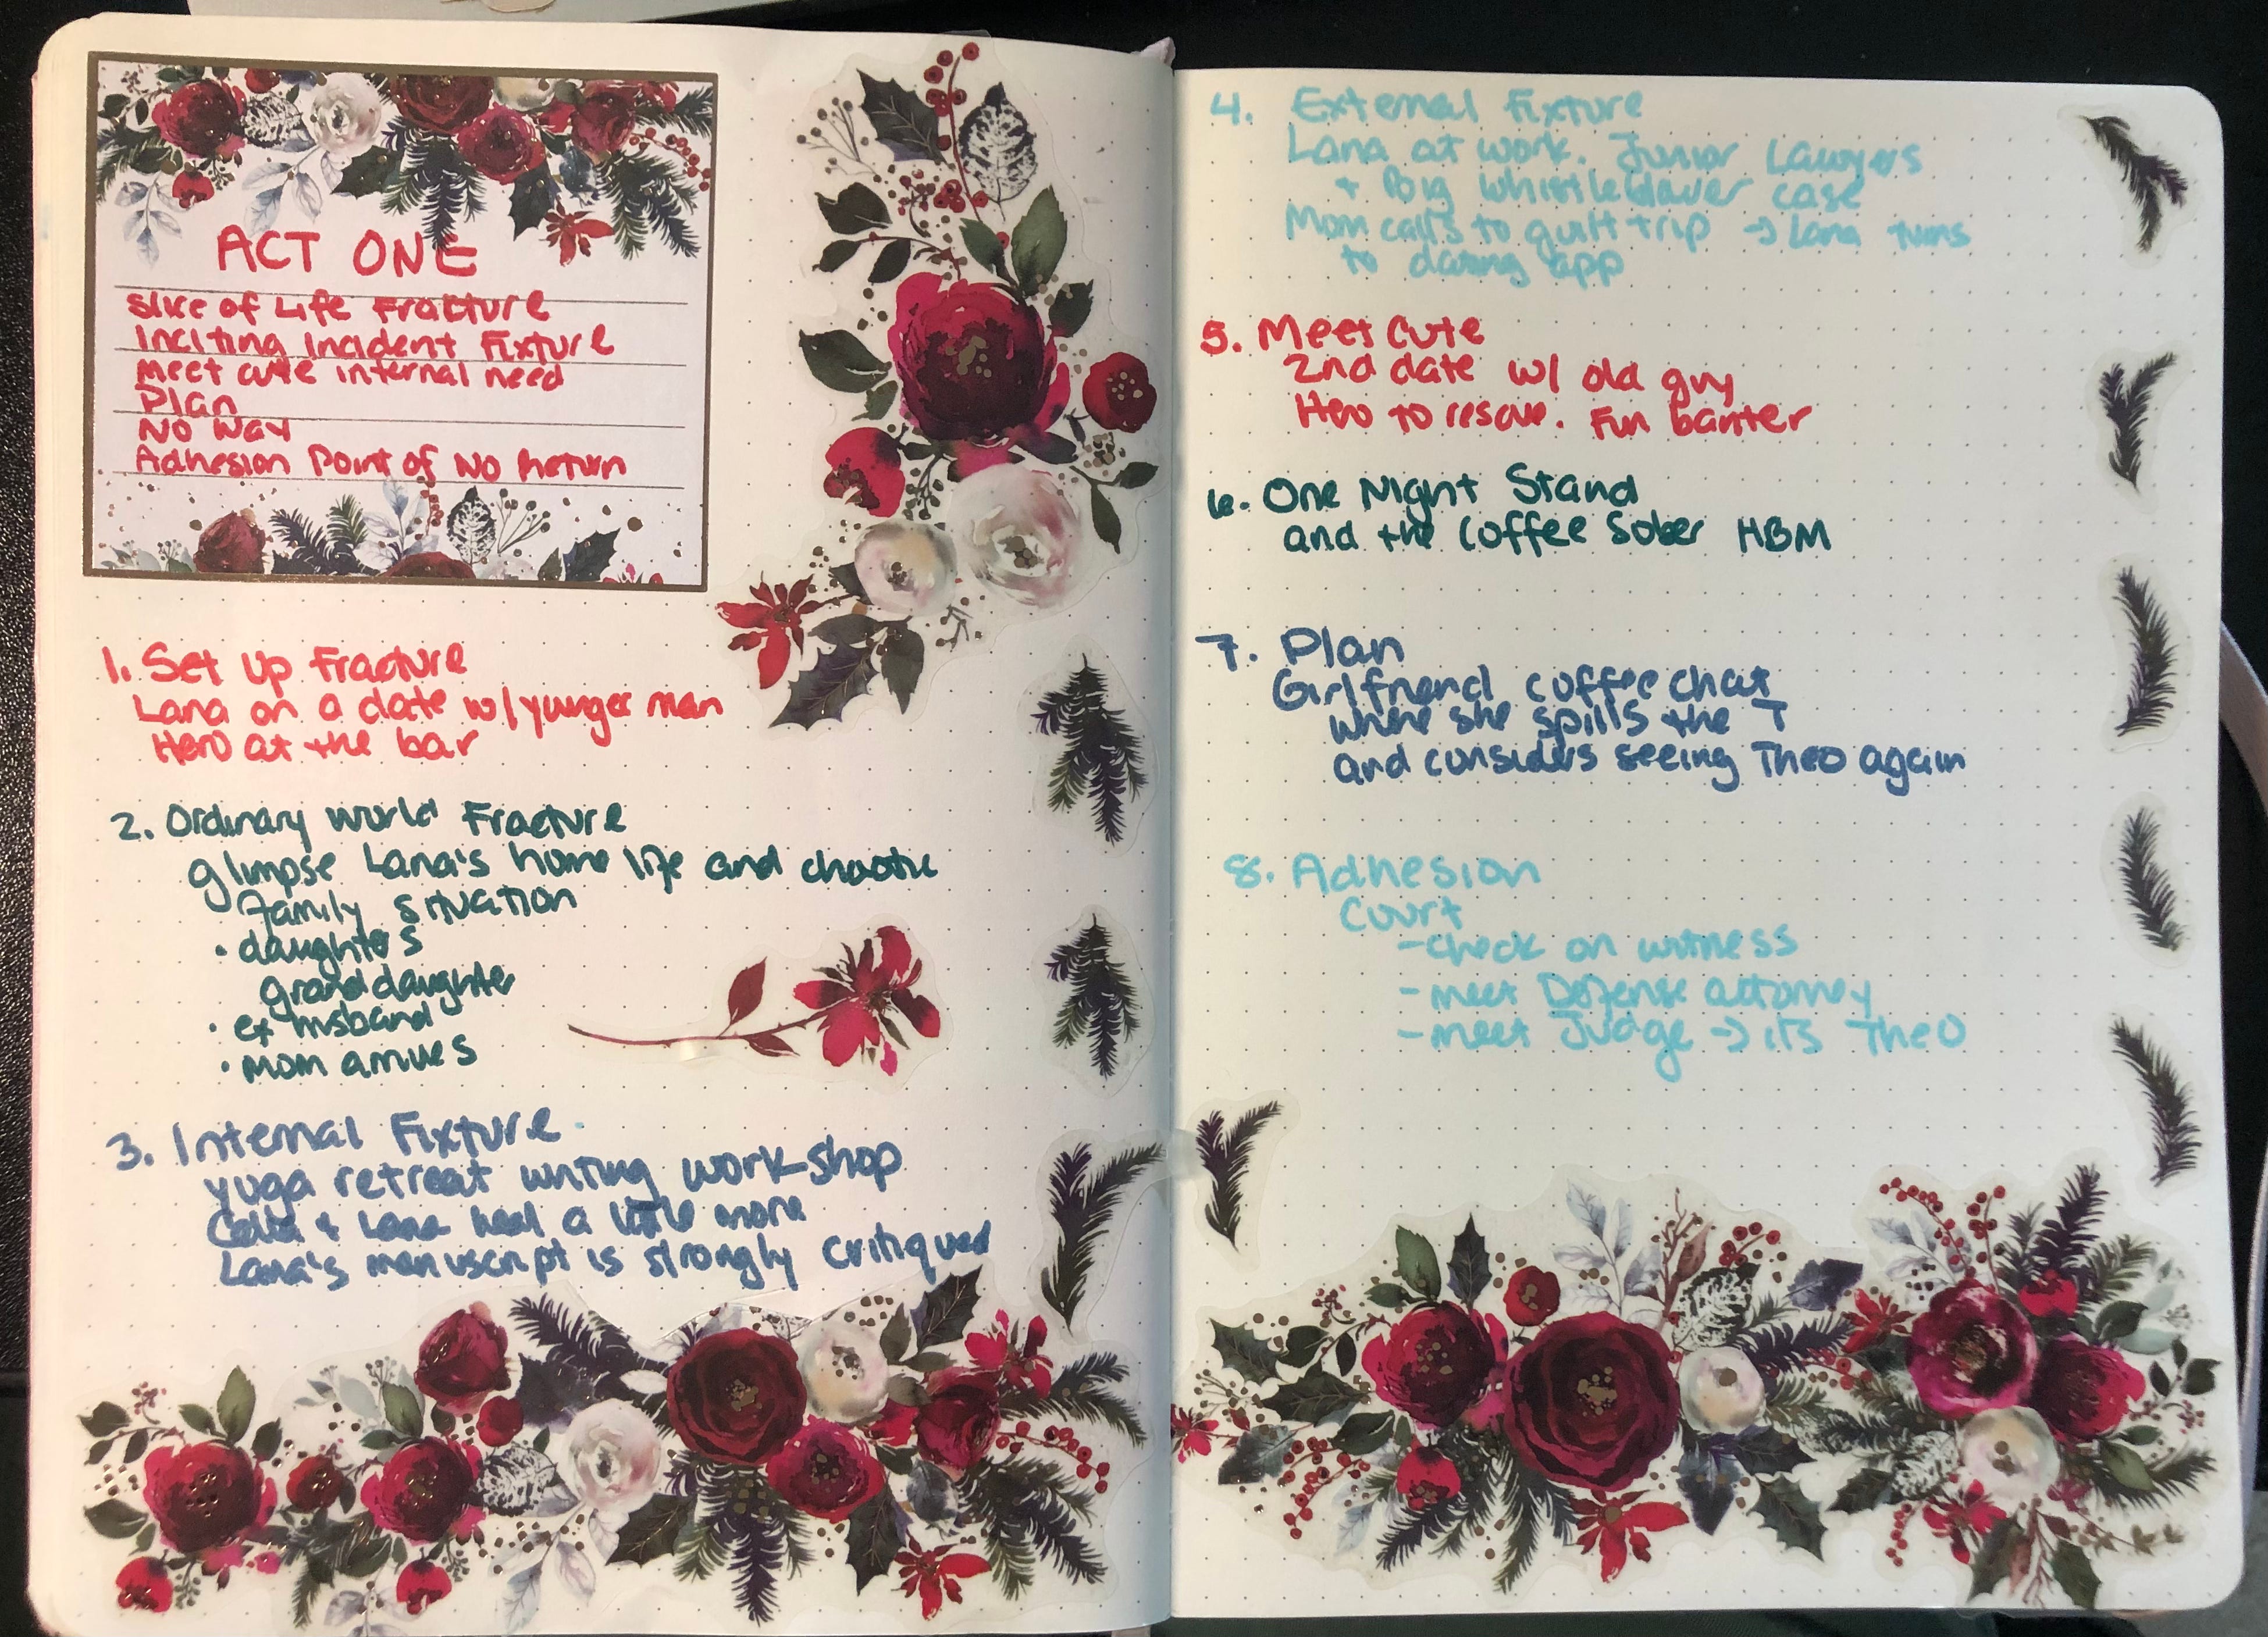 ACT ONE
Slice of Life Fracture
Inciting Incident Fixture
meet cute internal need
Plan
No Way
Adhesion Point of No Return
1. Set Up Fracture
Lana on a date w/ younger man
Hero at the bar
2. Ordinary World Fracture
glimpse Lana's home life and chaotic
family situation
• daughters
granddaughter
• ex husband
• mom arrives
3. Internal Fixture
yoga retreat writing workshop
& Lana heal a little more
Lana's manuscript is strongly critiqued
4. External Fixture
Lana at work. Junior Lawyers
+ Big whistleblower case
Mom calls to guilt trip → Lana turns
to dating app
5. Meet Cute
2nd date w/ old guy
Hero to rescue. Fun banter
6. One Night Stand
and the Coffee Sober HBM
7. Plan
Girlfriend coffee chat
where she spills the T
and considers seeing Theo again
8. Adhesion
Court
- check on witness
- meet Defense attorney
- meet Judge → it's Theo